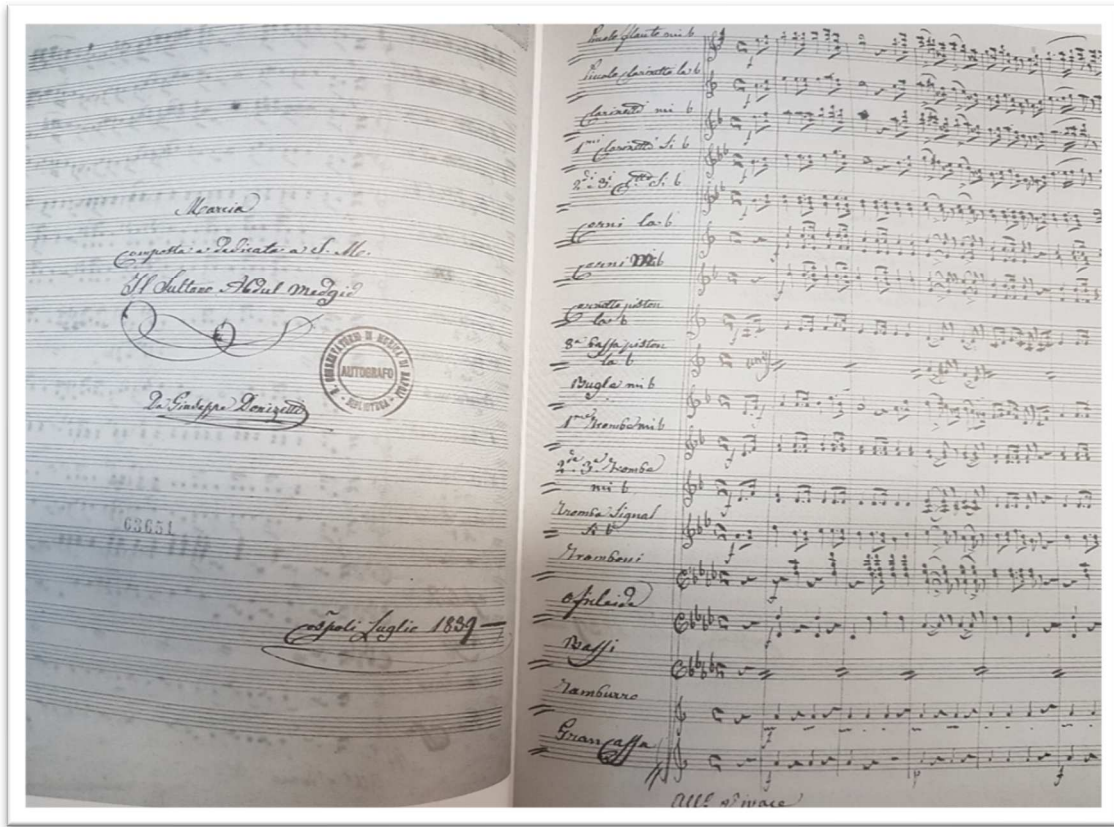 Marcia
Composta e Dedicata a S. M.
Il Sultano Abdul Medgid
R. CONSERVATORIO DI MUSICA DI NAPOLI
AUTOGRAFO
BIBLIOTECA
Da Giuseppe Donizetti
63651
Cospoli Luglio 1839
Piccolo flauto mi b
Piccolo clarinetto la b
Clarinetti mi b
1mi Clarinetti Si b
2di 3i Si b
Corni la b
Corni Mi b
Cornetto piston
la b
piston
la b
Bugla mi b
1ma Tromba mi b
2de 3e Tromba
mi b
Tromba Signal
Tromboni
Oficleide
Bassi
Tamburro
Gran Cassa
All° vivace